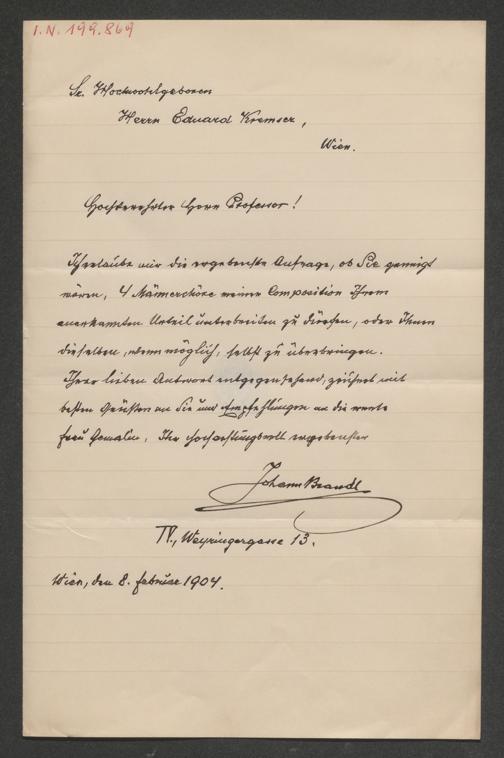 I.N. 199.869
Sr. Hochwohlgeboren
Herrn Eduard Kremser,
Wien.
Hochverehrter Herr Professor!
Ich erlaube mir die ergebenste Anfrage, ob Sie geneigt
wären, 4 Männerchöre meiner Composition Ihrem
anerkannten Urteil unterbreiten zu dürfen, oder Ihnen
dieselben, wenn möglich, selbst zu überbringen.
Ihrer lieben Antwort entgegensehend, zeichnet mit
besten Grüssen an Sie und Empfehlungen an die werte
Frau Gemalin, Ihr hochachtungsvoll ergebenster
Johann Brandl
IV., Weyringergasse 13.
Wien, den 8. Februar 1904.